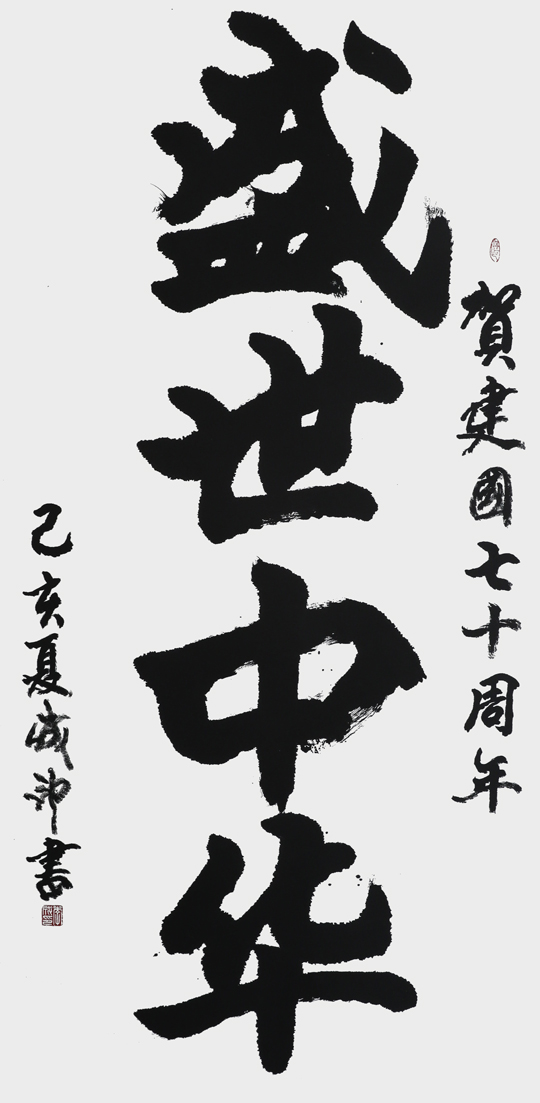 賀建國七十周年
盛世中华
己亥夏成帅書